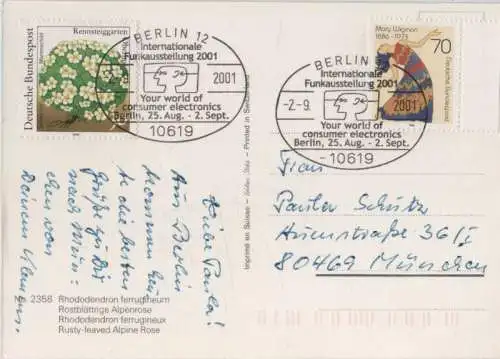 Deutsche Bundespost
Rennsteiggarten
BERLIN 12
Internationale
Funkausstellung 2001
2001
Your world of
consumer electronics
Berlin, 25. Aug. - 2. Sept.
10619
Mary Wigman
1886-1973
70
Deutsche Bundespost
BERLIN
Internationale
Funkausstellung 2001
-2.-9.
2001
Your world of
consumer electronics
Berlin, 25. Aug. - 2. Sept.
10619
Imprimé en Suisse
Printed in Switzerland
Liebe Paula!
Aus Berlin
kommen
die besten
Grüße zu Dir
nach Mün-
chen von
Deinem Klemens.
Frau
Paula Schütz
Auenstraße 36/I
80469 München
No. 2358 Rhododendron ferrugineum
Rostblättrige Alpenrose
Rhododendron ferrugineux
Rusty-leaved Alpine Rose